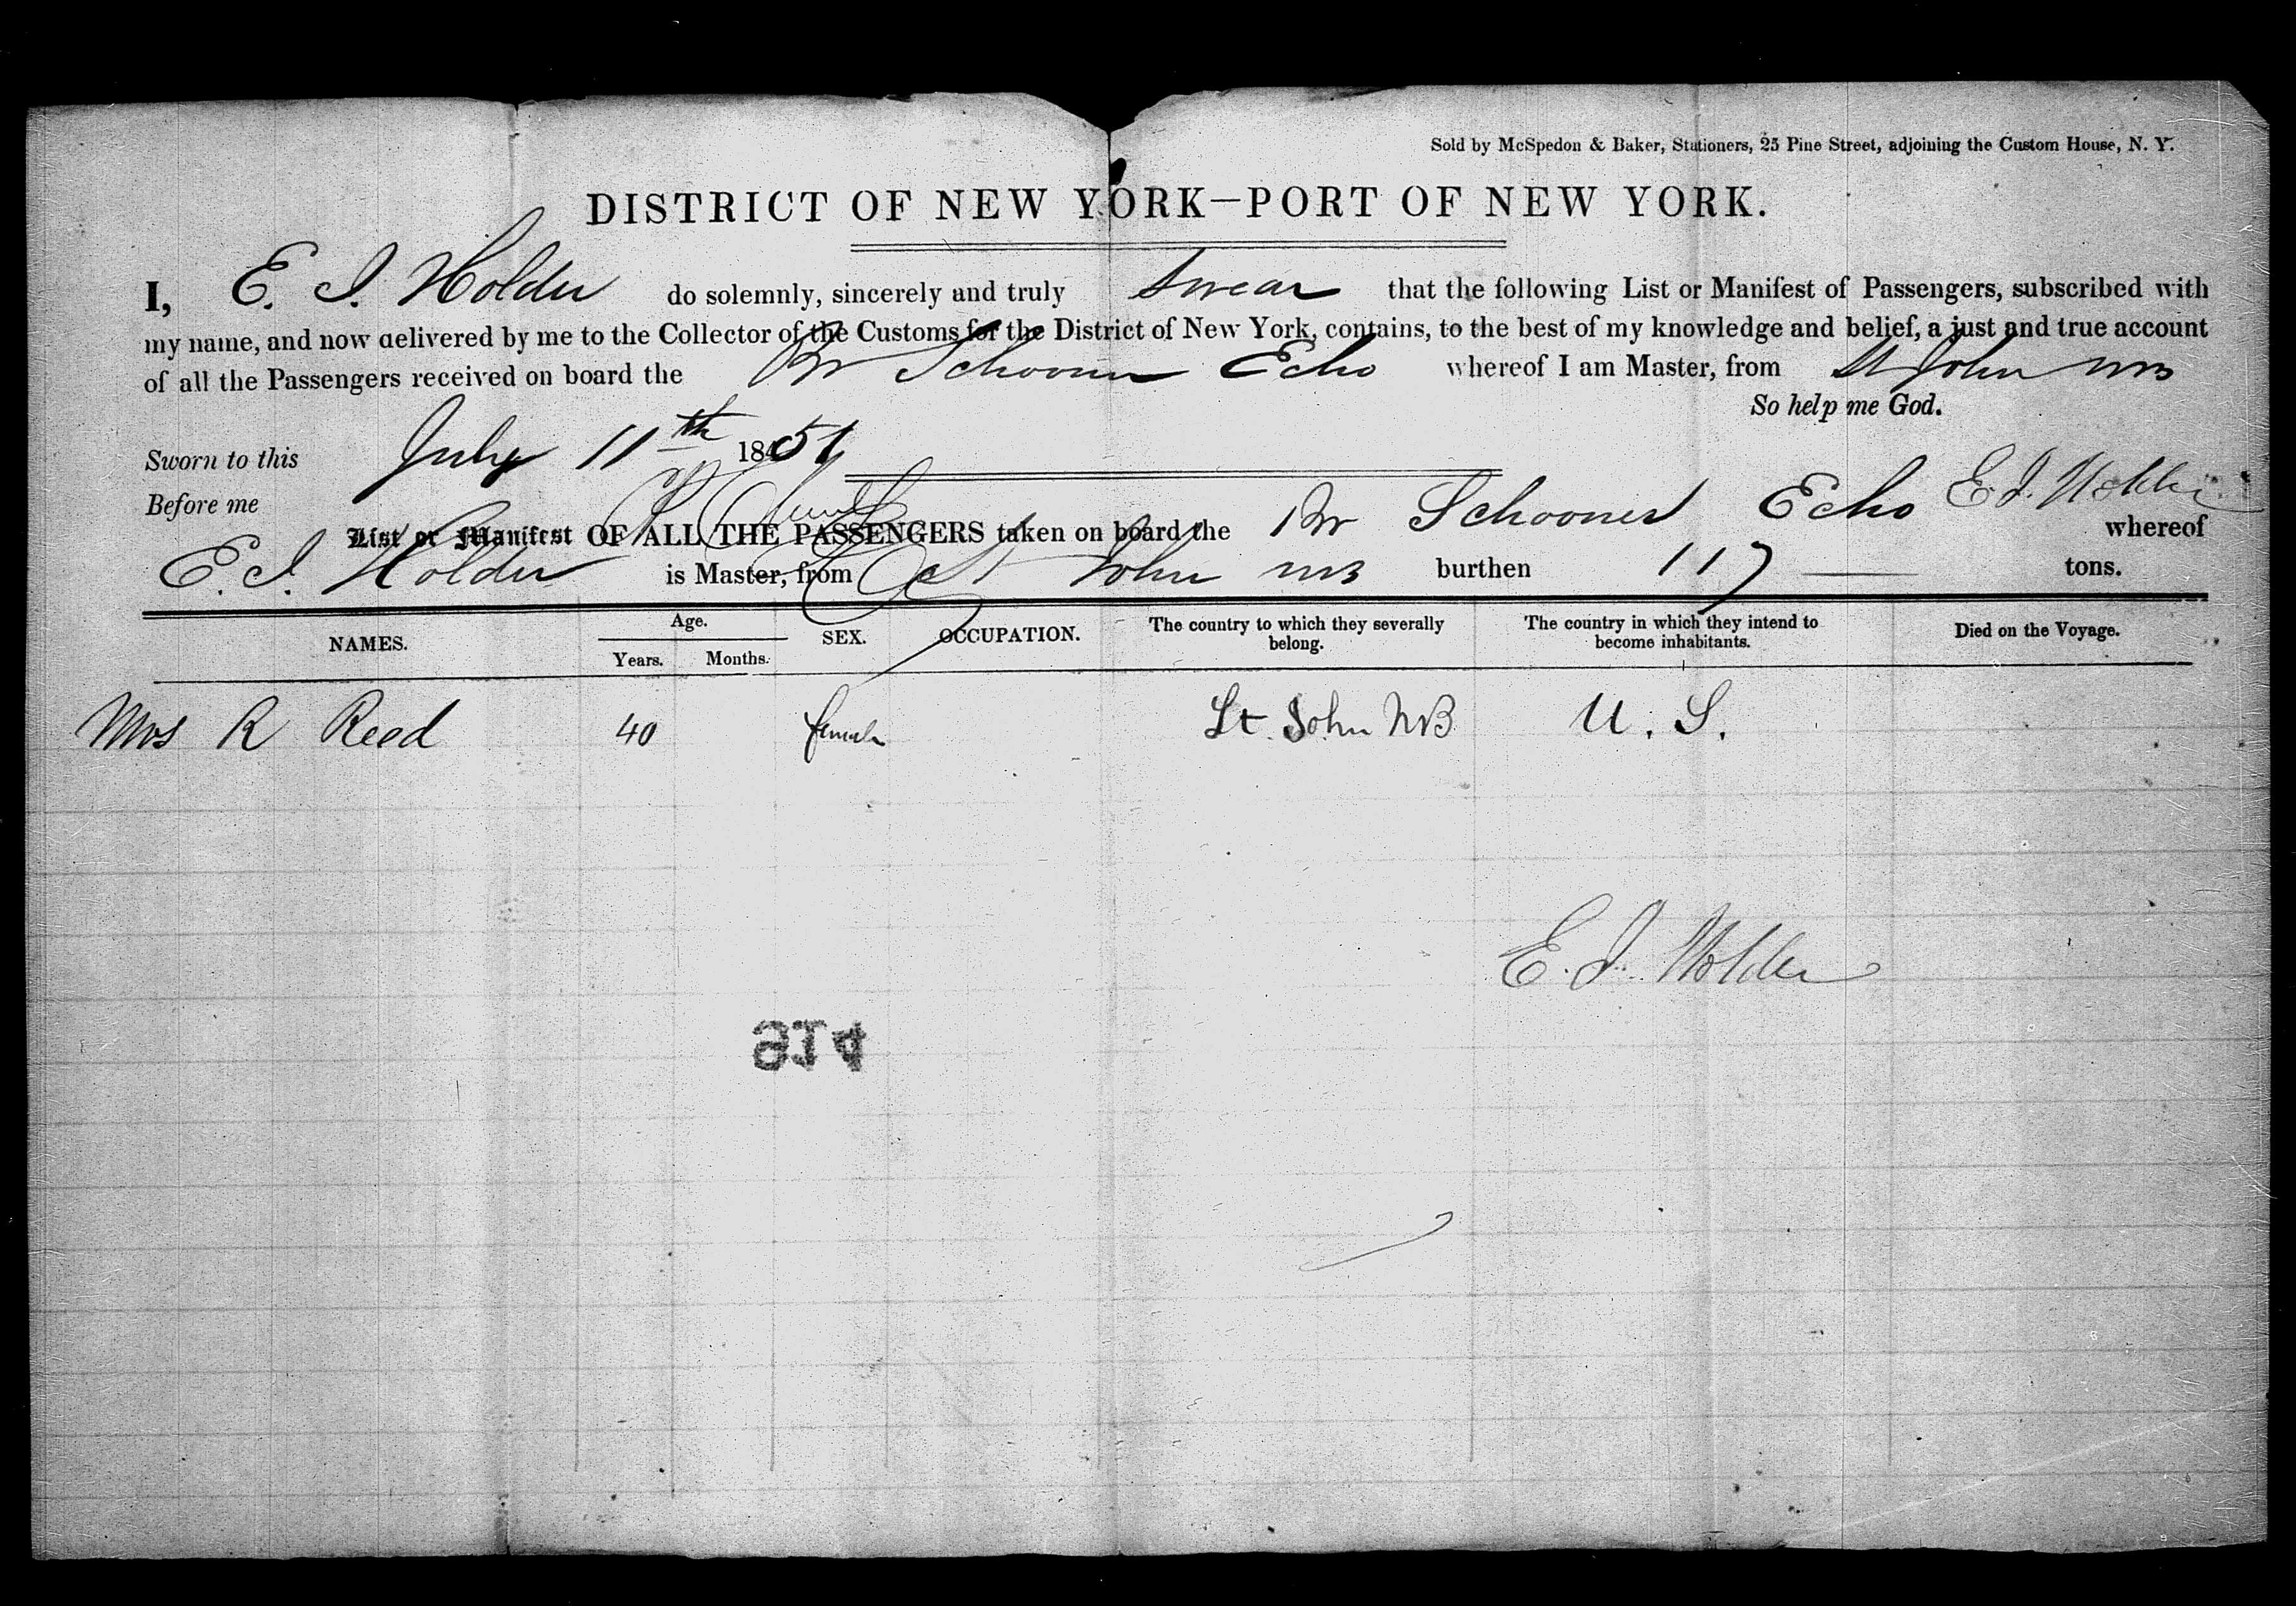 Sold by McSpedon & Baker, Stationers, 25 Pine Street, adjoining the Custom House, N. Y.
DISTRICT OF NEW YORK—PORT OF NEW YORK.
I, E. I. Holder do solemnly, sincerely and truly swear that the following List or Manifest of Passengers, subscribed with
my name, and now delivered by me to the Collector of the Customs for the District of New York, contains, to the best of my knowledge and belief, a just and true account
of all the Passengers received on board the Br Schooner Echo whereof I am Master, from St John NB
So help me God.
Sworn to this July 11th 1851
Before me E. I. Holder
List or Manifest OF ALL THE PASSENGERS taken on board the Br Schooner Echo whereof
E. I. Holder is Master, from St John NB burthen 117 tons.
NAMES. Age. SEX. OCCUPATION. The country to which they severally belong. The country in which they intend to become inhabitants. Died on the Voyage.
Years. Months.
Mrs R Reed 40 female St. John NB U. S.
E. I. Holder
914